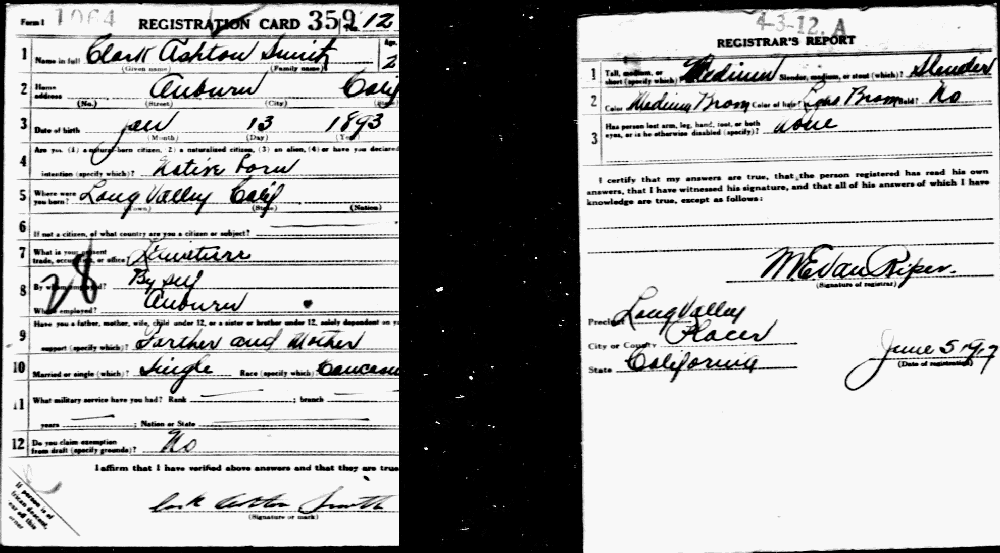 Form 1 1064 REGISTRATION CARD 359 12
1 Name in full Clark Ashton Smith Age,
(Given name) (Family name) 2
2 Home address Auburn Calif
(No.) (Street) (City)
3 Date of birth Jan 13 1893
(Month) (Day) (Year)
4 Are you (1) a natural-born citizen, 2) a naturalized citizen, (3) an alien, (4) or have you declared
intention (specify which)? Native born
5 Where were you born? Long Valley Calif
(Town) (State) (Nation)
6 If not a citizen, of what country are you a citizen or subject?
7 What is your present trade, occupation, or office
28
8 By whom employed? By self
Where employed? Auburn
9 Have you a father, mother, wife, child under 12, or a sister or brother under 12, solely dependent on
support (specify which)? Farther and Mother
10 Married or single (which)? Single Race (specify which)? Caucasu
11 What military service have you had? Rank ; branch
years ; Nation or State
12 Do you claim exemption from draft (specify grounds)? No
I affirm that I have verified above answers and that they are true
Clark Ashton Smith
(Signature or mark)
If person is of
African descent,
cut off this
corner
4-3-12. A
REGISTRAR'S REPORT
1 Tall, medium, or short (specify which)? Medium Slender, medium, or stout (which)? Slender
2 Color Medium Brown Color of hair? Brown Bald? No
3 Has person lost arm, leg, hand, foot, or both eyes, or is he otherwise disabled (specify)? None
I certify that my answers are true, that the person registered has read his own
answers, that I have witnessed his signature, and that all of his answers of which I have
knowledge are true, except as follows:
M E Van Riper
(Signature of registrar)
Precinct Long Valley
City or County Placer
State California
June 5 1917
(Date of registration)